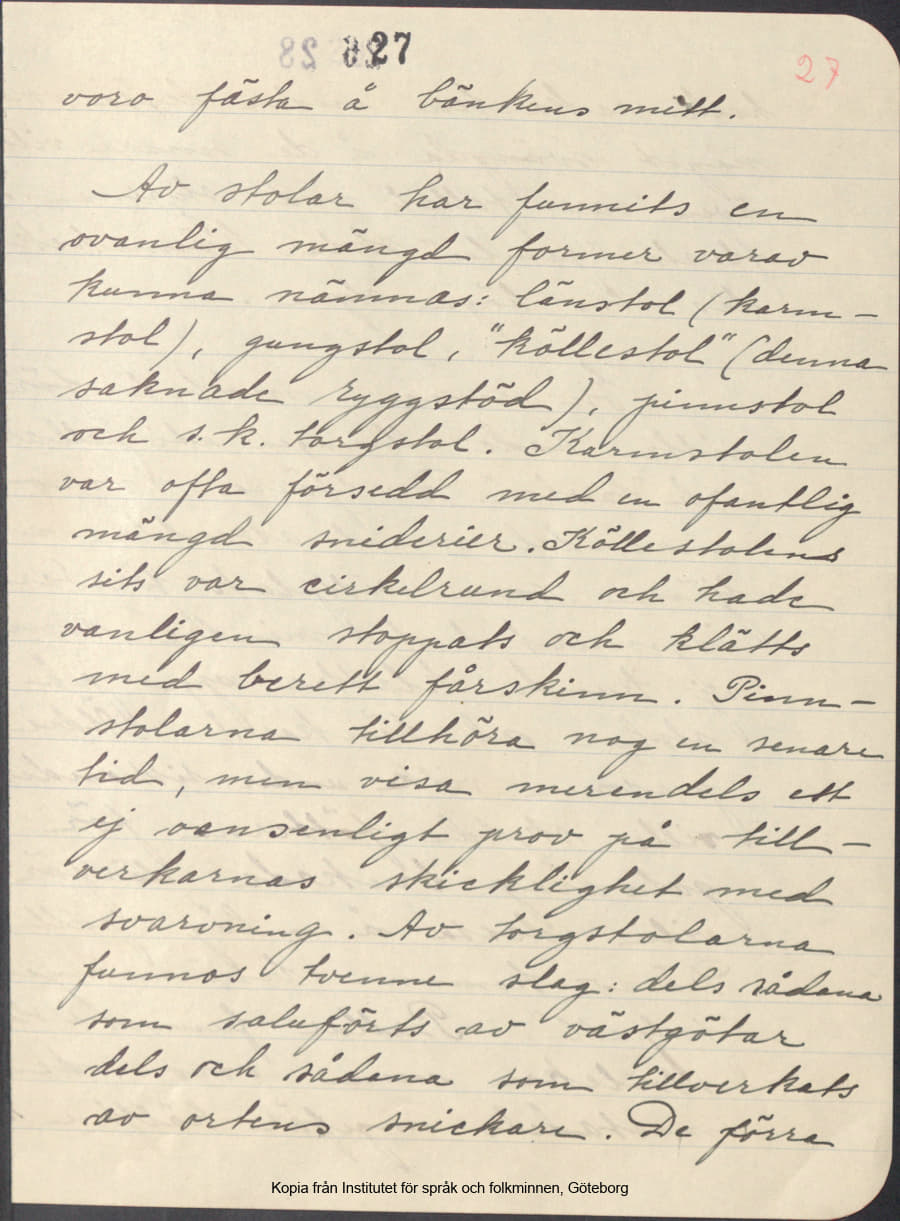 27
27
voro fästa å bänkens mitt.
Av stolar har funnits en
ovanlig mängd former varav
kunna nämnas: länstol (karm-
stol), gungstol, "köllestol" (denna
saknade ryggstöd), pinnstol
och s.k. torgstol. Karmstolen
var ofta försedd med en ofantlig
mängd sniderier. Köllestolens
sits var cirkelrund och hade
vanligen stoppats och klätts
med berett fårskinn. Pinn-
stolarna tillhöra nog en senare
tid, men visa merendels ett
ej oansenligt prov på till-
verkarnas skicklighet med
svarvning. Av torgstolarna
funnos tvenne slag: dels sådana
som saluförts av västgötar
dels och sådana som tillverkats
av ortens snickare. De förra
Kopia från Institutet för språk och folkminnen, Göteborg